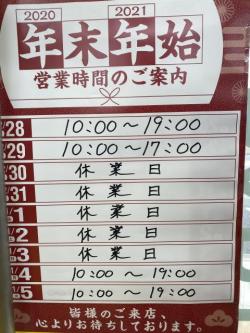 2020 2021
年末年始
営業時間のご案内
/28 10:00～19:00
/29 10:00～17:00
/30 休業日
/31 休業日
/1 休業日
/2 休業日
/3 休業日
/4 10:00～19:00
/5 10:00～19:00
皆様のご来店、
心よりお待ちしております。